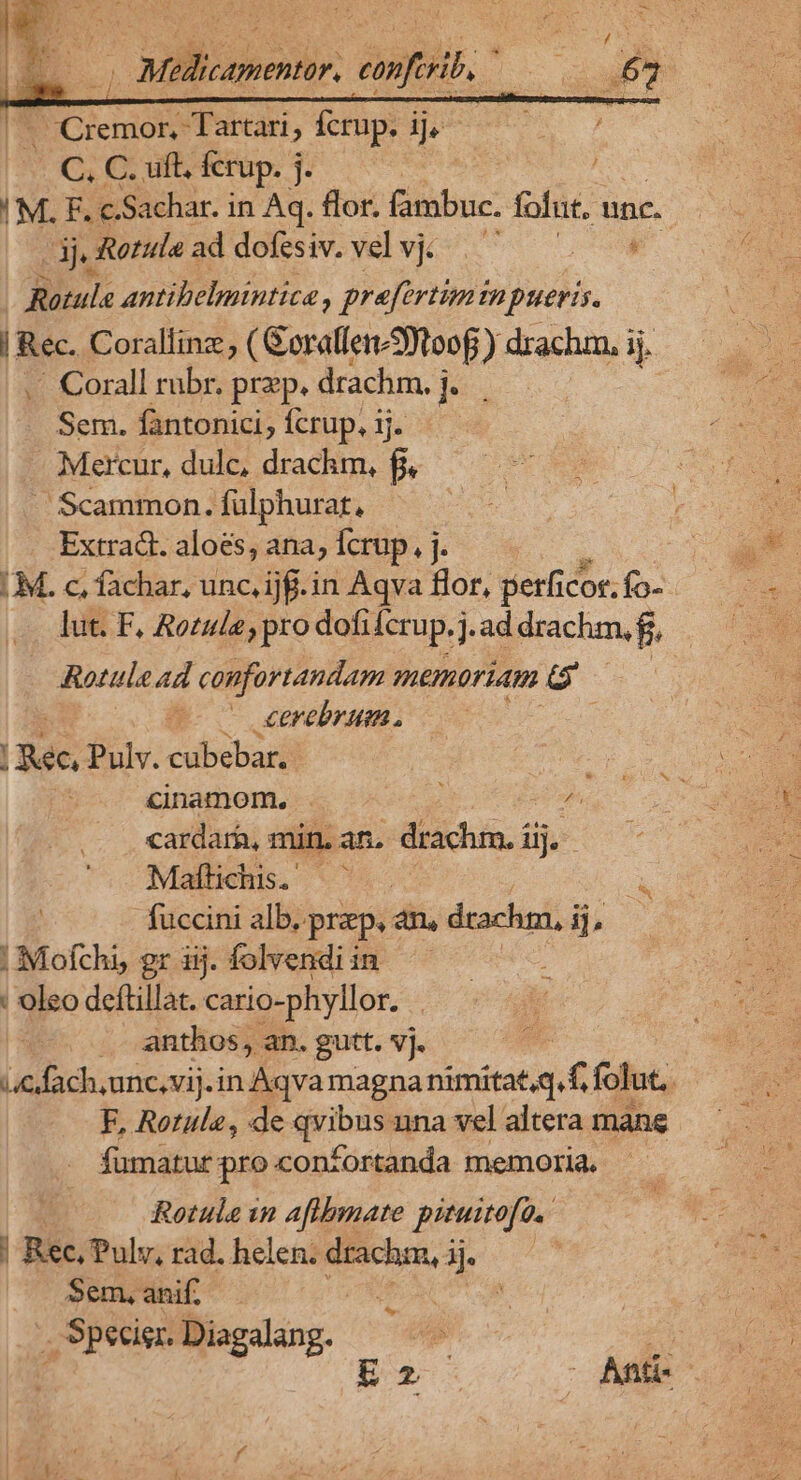 Medicamentor, conſcrib, 67
Cremor, Tartari, ſcrup. ij.
C. C. uſt, ſcrup. j.
M. F. c.Sachar. in Aq. flor. ſambuc. ſolut. unc.
ij, Rotulæ ad doſes iv. vel vj.
Rotulæ antihelmintica, præſertim in pueris.
Rec. Corallinæ, (Corallen-Mooß) drachm. ij.
Corall rubr. præp, drachm. j.
Sem. ſantonici, ſcrup, ij.
Mercur, dulc, drachm, ß,
Scammon. ſulphurat,
Extract. aloës, ana, ſcrup, j.
M. c, ſachar, unc, ijß. in Aqva flor, perſicor. ſo-
lut. F, Rotulæ, pro doſi ſcrup. j. ad drachm, ß,
Rotulæ ad confortandam memoriam &
cerebrum.
Rec, Pulv. cubebar,
cinamom,
cardam, min. an. drachm. iij.
Maſtichis.
ſuccini alb, præp, an, drachm, ij,
Moſchi, gr iij. ſolvendi in
oleo deſtillat. cario-phyllor.
anthos, an. gutt. vj.
c, ſach, unc, vij. in Aqva magnanimitat, q, ſ, ſolut.
F, Rotulæ, de qvibus una vel altera mane
ſumatur pro confortanda memoria.
Rotulæ in aſthmate pituitoſo.
Rec, Pulv, rad. helen. drachm, ij.
Sem, aniſ,
Specier. Diagalang.
E 2 Anti-